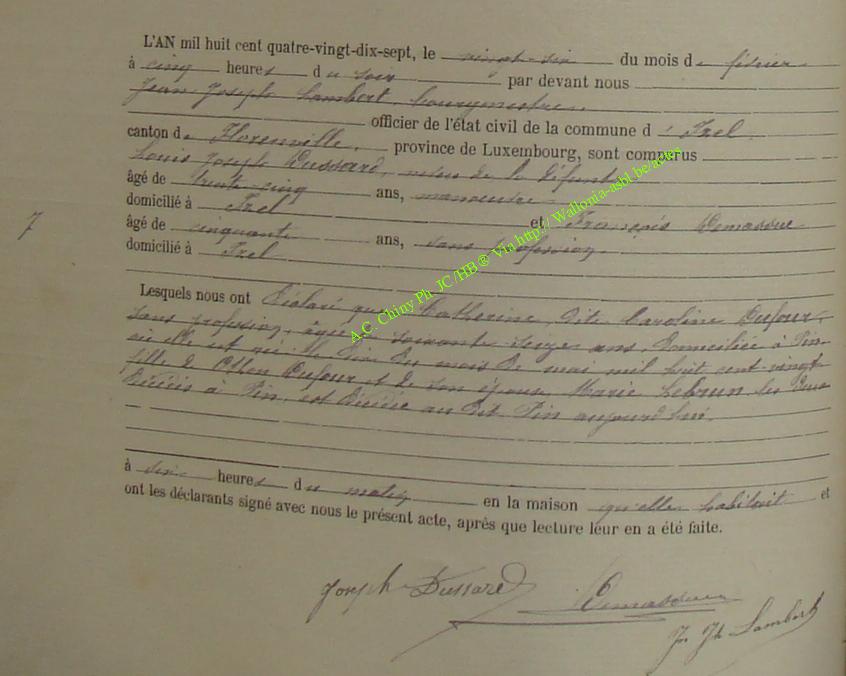 L'AN mil huit cent quatre-vingt-dix-sept, le vingt-six du mois de février
à cinq heures du soir par devant nous
Jean Joseph Lambert, bourgmestre,
officier de l'état civil de la commune d'Izel
canton de Florenville, province de Luxembourg, sont comparus
Louis Joseph Dussard, neveu de la défunte
âgé de trente cinq ans, manoeuvre
domicilié à Izel et François Demasure
âgé de cinquante ans, sans profession
domicilié à Izel
7
Lesquels nous ont déclaré que Catherine, dite Caroline Dufour
sans profession, âgée de soixante seize ans, domiciliée à Pin
où elle est née le dix du mois de mai mil huit cent vingt
fille de Dufour et de son épouse Marie Lebrun les deux
décédés à Pin, est décédée au dit Pin aujourd'hui.
à six heures du matin en la maison qu'elle habitait et
ont les déclarants signé avec nous le présent acte, après que lecture leur en a été faite.
Joseph Dussard Demasure
Jn Jh Lambert
A.C. Chiny Ph. JC /HB ® Via http:// Wallonia-asbl.be/actes